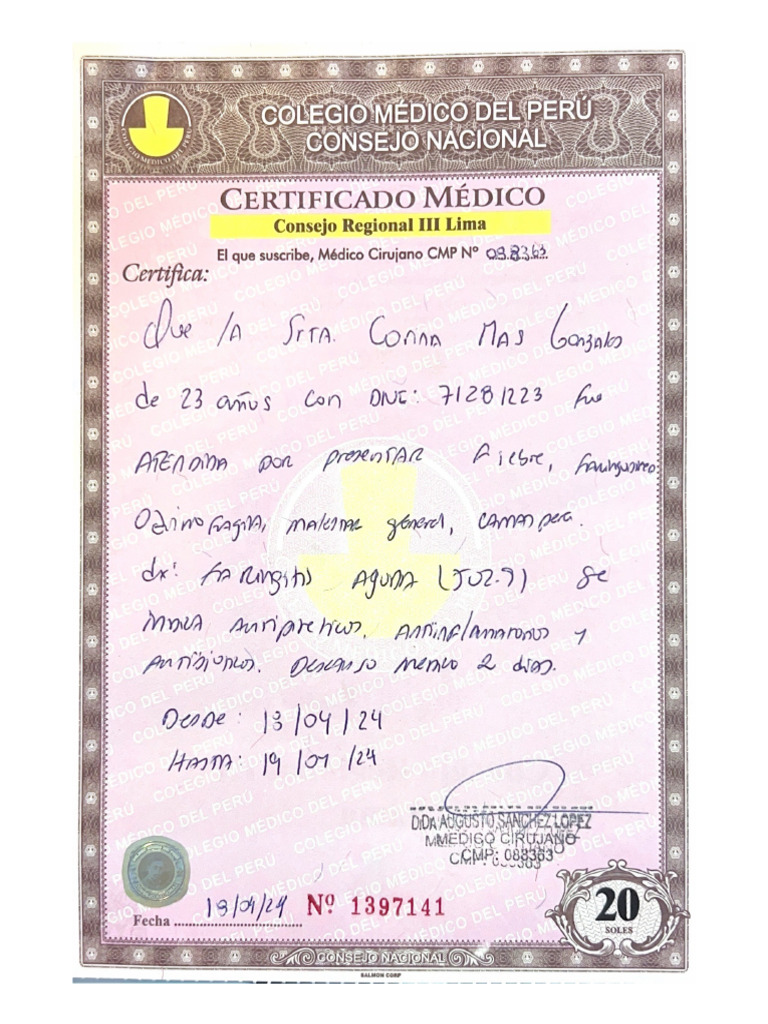 COLEGIO MÉDICO DEL PERÚ
CONSEJO NACIONAL
COLEGIO MÉDICO DEL PERÚ
CERTIFICADO MÉDICO
Consejo Regional III Lima
El que suscribe, Médico Cirujano CMP Nº 088363
Certifica:
Que la Srta. Mas Gonzales
de 23 años con DNI: 71281223 fue
ATENDIDA por presentar fiebre,
Odinofagia, malestar general,
dx: FARINGITIS AGUDA (J02.9) se
indica antipireticos, antiinflamatorios y
antibioticos. Descanso medico 2 dias.
Desde: 18/04/24
Hasta: 19/04/24
D.DA AUGUSTO SANCHEZ LOPEZ
MEDICO CIRUJANO
CMP: 088363
Fecha 18/04/24 Nº 1397141
20
SOLES
CONSEJO NACIONAL
SALMON CORP